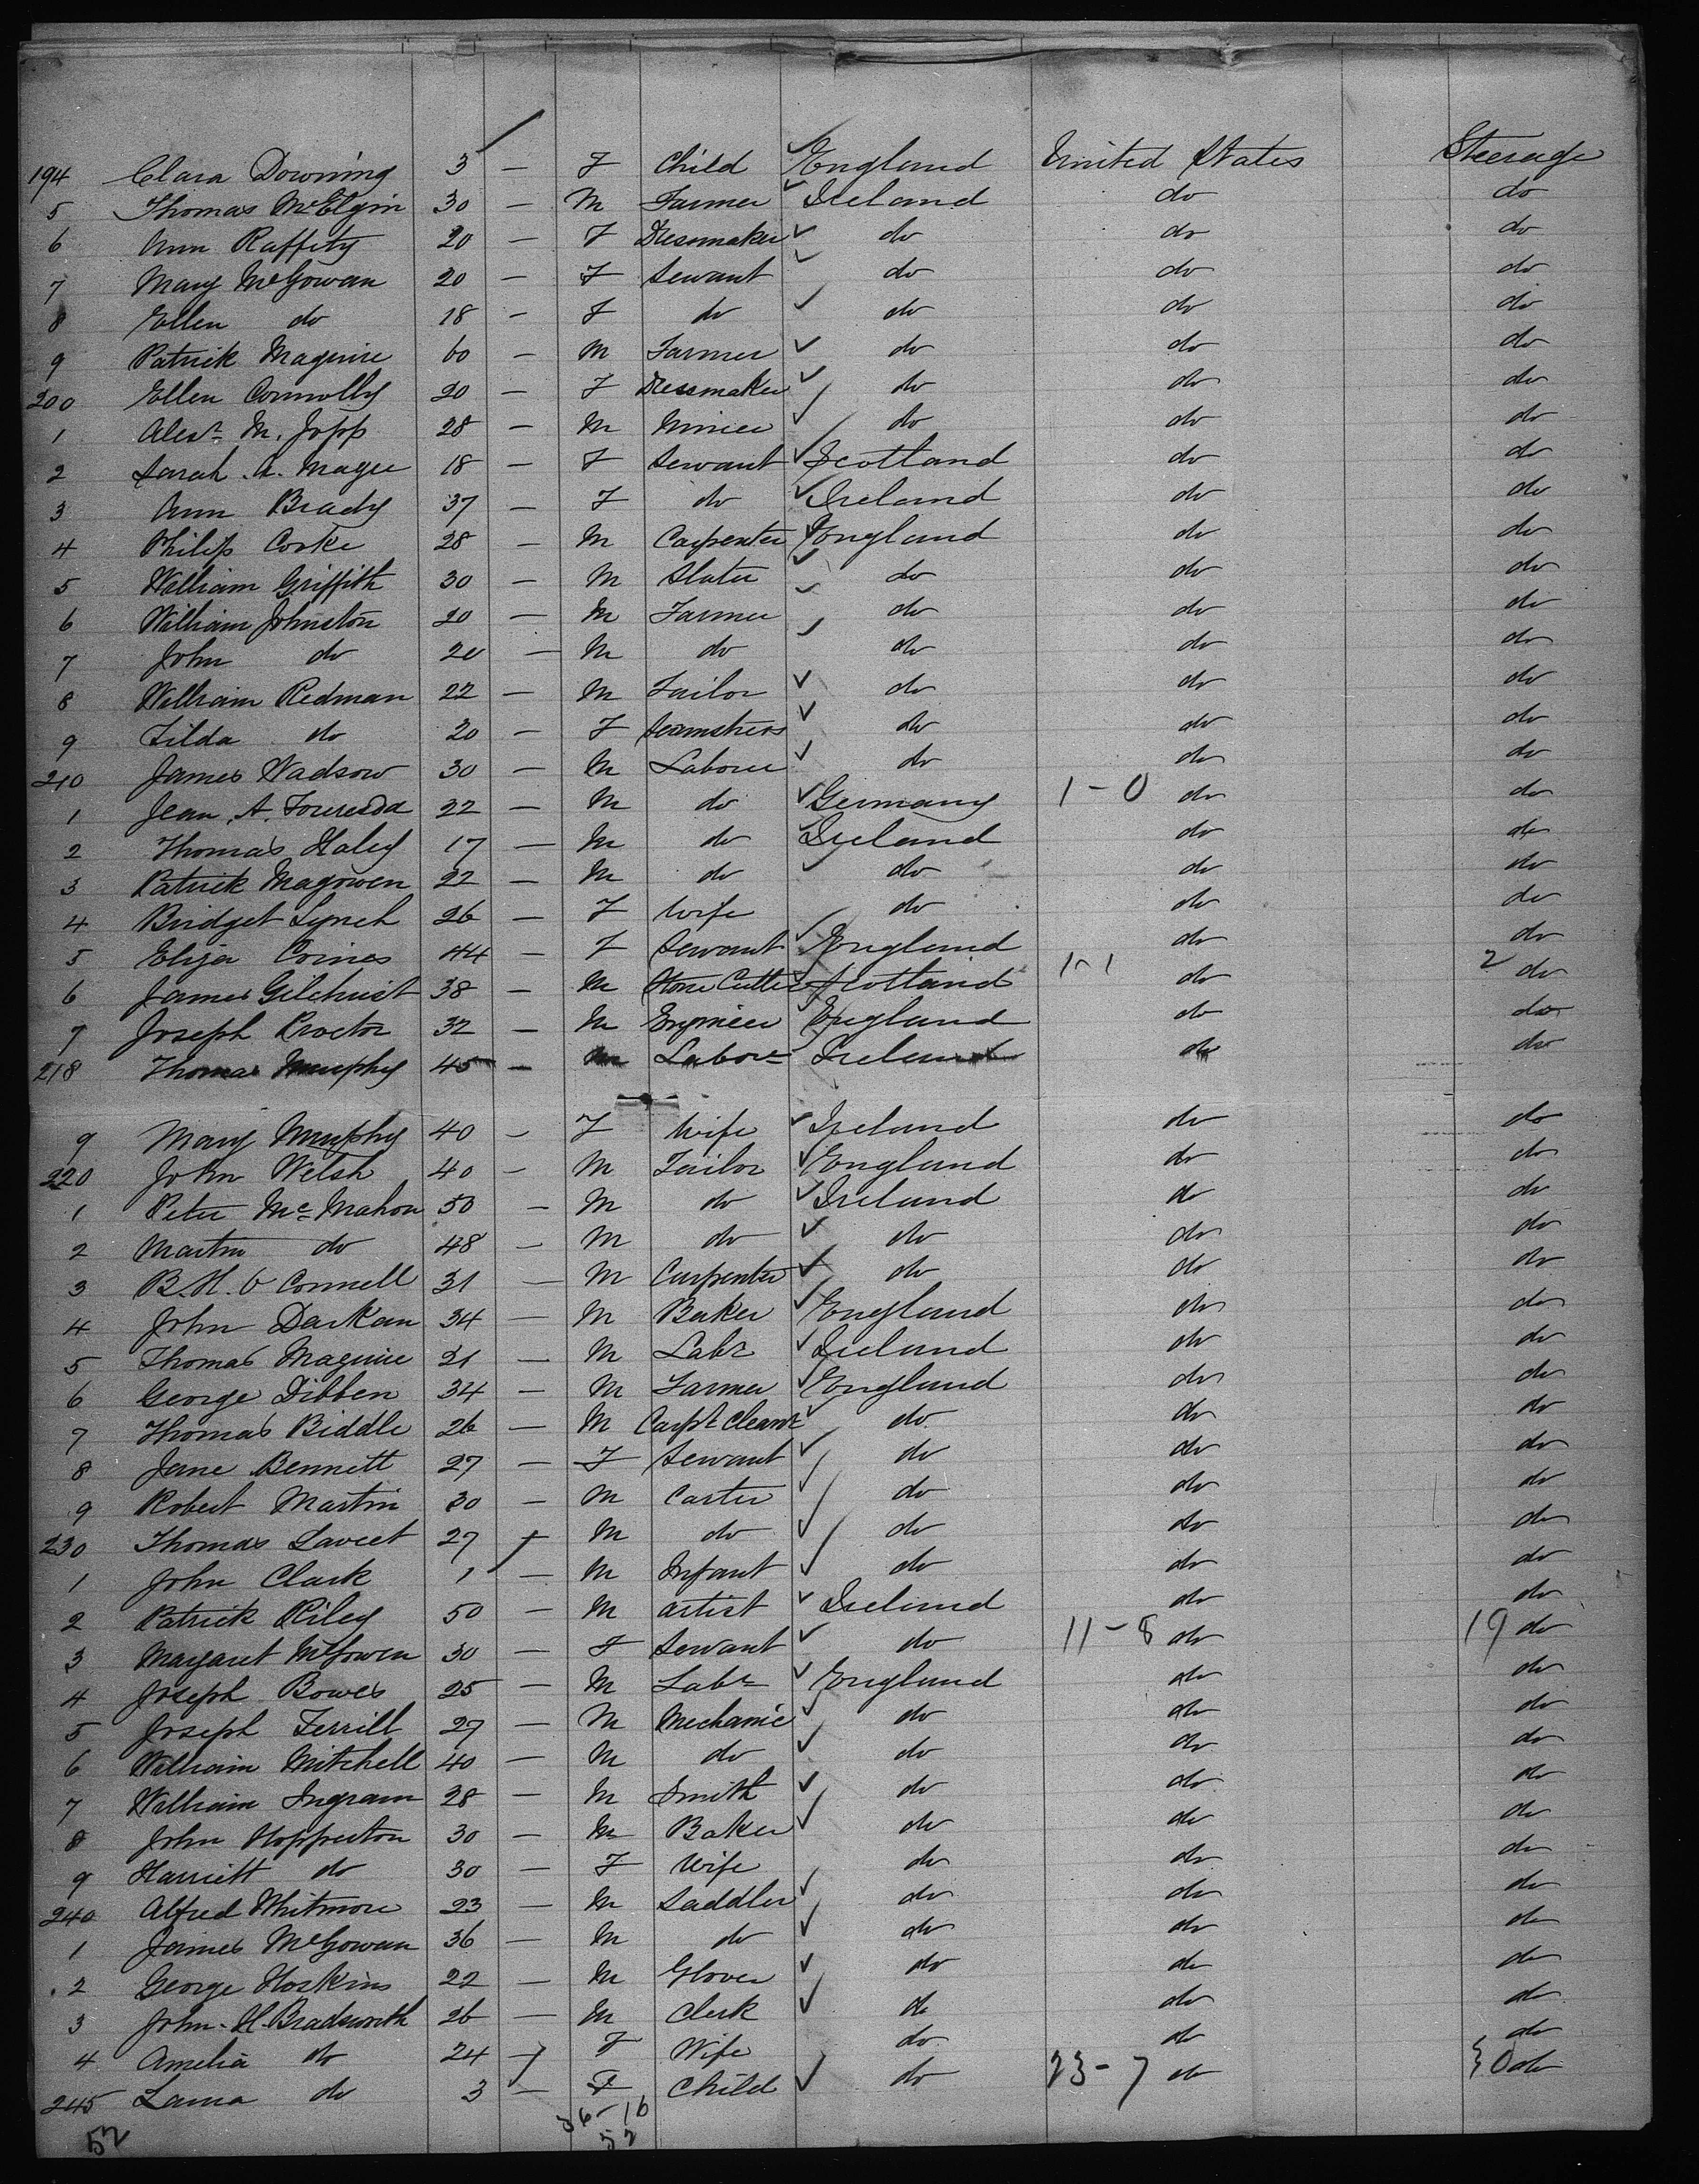 194 Clara Downing 3 — F Child England United States Steerage
5 Thomas McElgin 30 — M Farmer Ireland do do
6 Ann Raffity 20 — F Dressmaker do do do
7 Mary McGowan 20 — F Servant do do do
8 Ellen do 18 — F do do do do
9 Patrick Maguire 60 — M Farmer do do do
200 Ellen Connolly 20 — F Dressmaker do do do
1 Alexr M. Jopp 28 — M Miner do do do
2 Sarah A. Magee 18 — F Servant Scotland do do
3 Ann Brady 37 — F do Ireland do do
4 Philip Corke 28 — M Carpenter England do do
5 William Griffith 30 — M Slater do do do
6 William Johnston 20 — M Farmer do do do
7 John do 20 — M do do do do
8 William Redman 22 — M Tailor do do do
9 Tilda do 20 — F Seamstress do do do
210 James Wadsow 30 — M Laborer do do do
1 Jean A. 22 — M do Germany 1-0 do do
2 Thomas Haley 17 — M do Ireland do do
3 Patrick Magowen 22 — M do do do do
4 Bridget Lynch 26 — F Wife do do do
5 Eliza 44 — F Servant England do do
6 James Gilchrist 38 — M Stone Cutter Scotland 1-1 do 2 do
7 Joseph Proctor 32 — M Engineer England do do
218 Thomas Murphy 45 — M Labor Ireland do do
9 Mary Murphy 40 — F Wife Ireland do do
220 John Welsh 40 — M Tailor England do do
1 Peter Mc Mahon 50 — M do Ireland do do
2 Martin do 48 — M do do do do
3 B. H. O Connell 31 — M Carpenter do do do
4 John Darkan 34 — M Baker England do do
5 Thomas Maguire 21 — M Labr Ireland do do
6 George Dibben 34 — M Farmer England do do
7 Thomas Biddle 26 — M Carpt Cleanr do do do
8 Jane Bennett 27 — F Servant do do do
9 Robert Martin 30 — M Carter do do do
230 Thomas Laveet 27 — M do do do do
1 John Clark 1 — M Infant do do do
2 Patrick Riley 50 — M Artist Ireland do do
3 Margaret McGowen 30 — F Servant do 11-8 do 19 do
4 Joseph Bowes 25 — M Labr England do do
5 Joseph Terrill 27 — M Mechanic do do do
6 William Mitchell 40 — M do do do do
7 William Ingram 28 — M Smith do do do
8 John Hopperton 30 — M Baker do do do
9 Harriett do 30 — F Wife do do do
240 Alfred Whitmore 23 — M Saddler do do do
1 James McGowan 36 — M do do do do
2 George Hoskins 22 — M Glover do do do
3 John H. Bradsworth 26 — M Clerk do do do
4 Amelia do 24 — F Wife do do do
245 Laura do 3 — F Child do 23-7 do 30 do
36-16
52 52